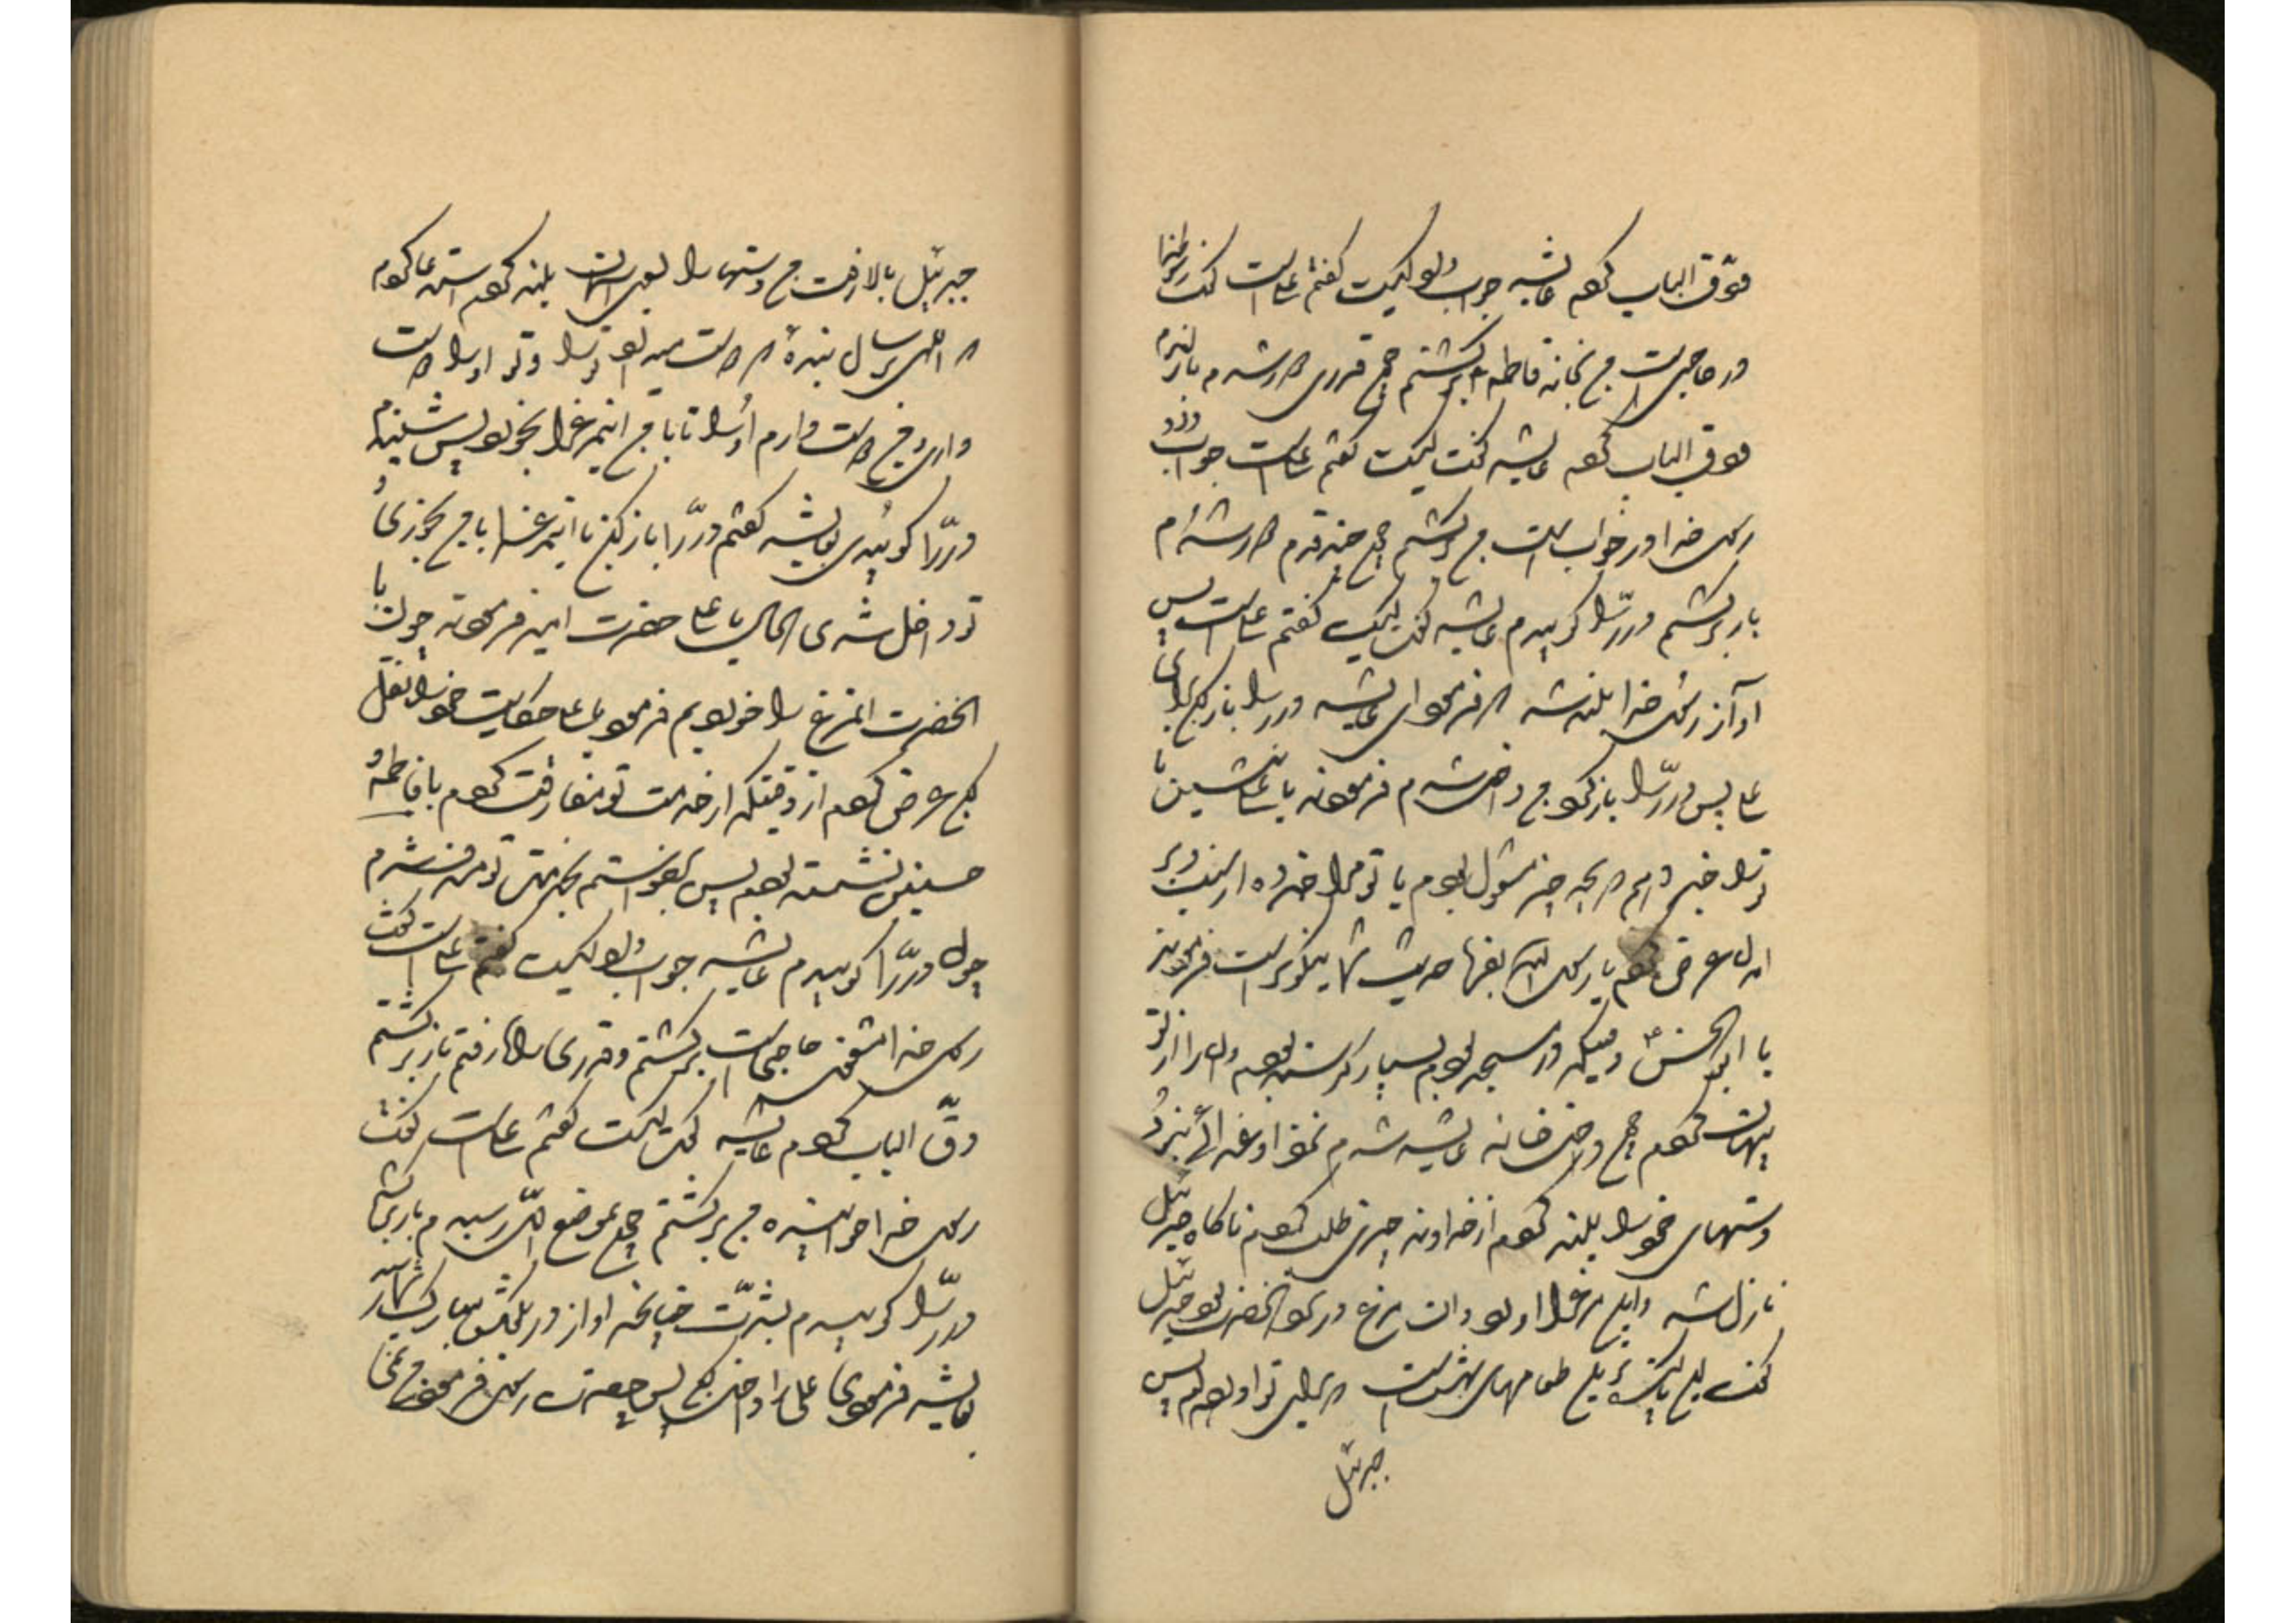 فوق الباب کردم عایشه جواب داد کیست گفتم علی است گفت رسول خدا
در حاجتی است من بخانه فاطمه برگشتم چون قدری دور شدم باز آمدم
دق الباب کردم عایشه گفت کیست گفتم علی است جواب داد
رسول خدا در خواب است من برگشتم چون چند قدم دور شدم
باز برگشتم در را کوبیدم عایشه گفت کیست گفتم علی است پس
آواز رسول خدا بلند شد که فرمود ای عایشه در را باز کن برای
علی پس در را باز کرد من داخل شدم فرمودند یا علی بنشین تا
ترا خبر دهم که بچه چیز مشغول بودم یا تو مرا خبر ده از
عرض کردم یا رسول الله بفرما حدیث شما نیکوتر است فرمودند
یا ابا الحسن وقتیکه در مسجد بودم بسیار گرسنه بودم و آن را از تو
پنهان کردم چون داخل خانه عایشه شدم نزد او غذائی نبود
دستهای خود را بلند کردم از خداوند چیزی طلب کردم ناگاه جبرئیل
نازل شد و این مرغ را آورد و آن مرغ در نزد آنحضرت بود جبرئیل
گفت این پاکیزه ترین طعامهای بهشت است که برای تو آوردم پس
جبرئیل
جبرئیل بالا رفت من دستها را بسوی آسمان بلند کردم استدعا کردم
که الهی برسان بنده که دوست میدارد ترا و تو او را دوست
داری و من دوست دارم او را تا با من این مرغ را بخورد پس شنیدم
در را کوبیدی بعایشه گفتم در را باز کن تا این مرغ را با من بخورد
تو داخل شدی الحال یا علی حضرت امیر فرمودند چون با
آنحضرت آن مرغ را خوردیم فرمود یا علی حکایت خود را نقل
کن عرض کردم از وقتیکه از خدمت تو مفارقت کردم با فاطمه و
حسنین نشسته بودم پس برخواستم بخدمت تو مشرف شدم
چون در را کوبیدم عایشه جواب داد کیست گفتم علی است گفت
رسول خدا مشغول حاجتی است برگشتم و قدری راه رفتم باز برگشتم
دق الباب کردم عایشه گفت کیست گفتم علی است گفت
رسول خدا خوابیده من برگشتم چون بموضع اول رسیدم باز برگشتم
در را کوبیدم بشدت چنانچه آواز در بگوش مبارک شما رسید
بعایشه فرمودی علی را داخل کن پس حضرت رسول فرمود